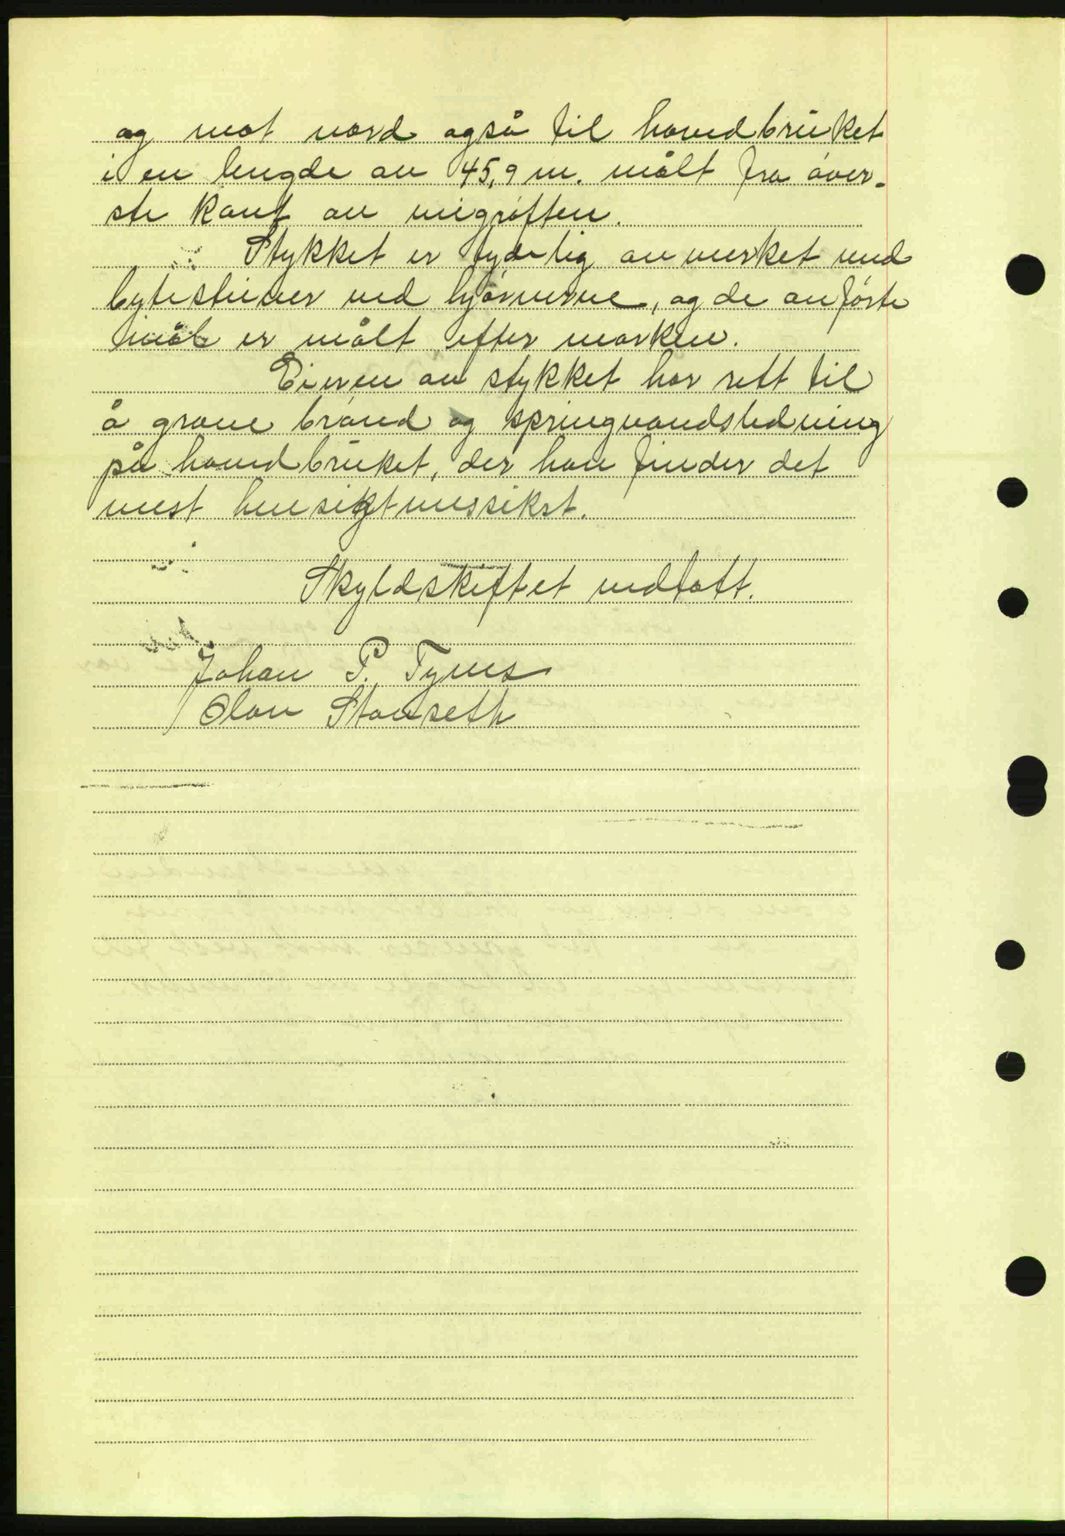 og mot nord også til hovedbruket
i en lengde av 45,9 m. målt fra øver-
ste kant av vegrøften.
Stykket er tydelig avmerket med
bytesteiner ved hjørnerne, og de anførte
mål er målt efter marken.
Eieren av stykket har rett til
å grave brønd og springvandsledning
på hovedbruket, der han finder det
mest hensiktmessikst.
Skyldskiftet vedtatt.
Johan P. Tynes
Olav Stavseth